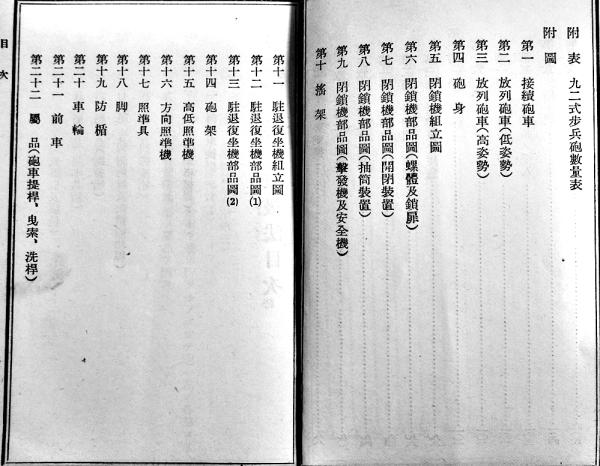 附表　九二式步兵砲數量表
附圖
第一　接續砲車
第二　放列砲車(低姿勢)
第三　放列砲車(高姿勢)
第四　砲身
第五　閉鎖機組立圖
第六　閉鎖機部品圖(螺體及鎖扉)
第七　閉鎖機部品圖(開閉裝置)
第八　閉鎖機部品圖(抽筒裝置)
第九　閉鎖機部品圖(擊發機及安全機)
第十　搖架
第十一　駐退復坐機組立圖
第十二　駐退復坐機部品圖(1)
第十三　駐退復坐機部品圖(2)
第十四　砲架
第十五　高低照準機
第十六　方向照準機
第十七　照準具
第十八　脚
第十九　防楯
第二十　車輪
第二十一　前車
第二十二　屬品(砲車提桿、曳索、洗桿)
目次